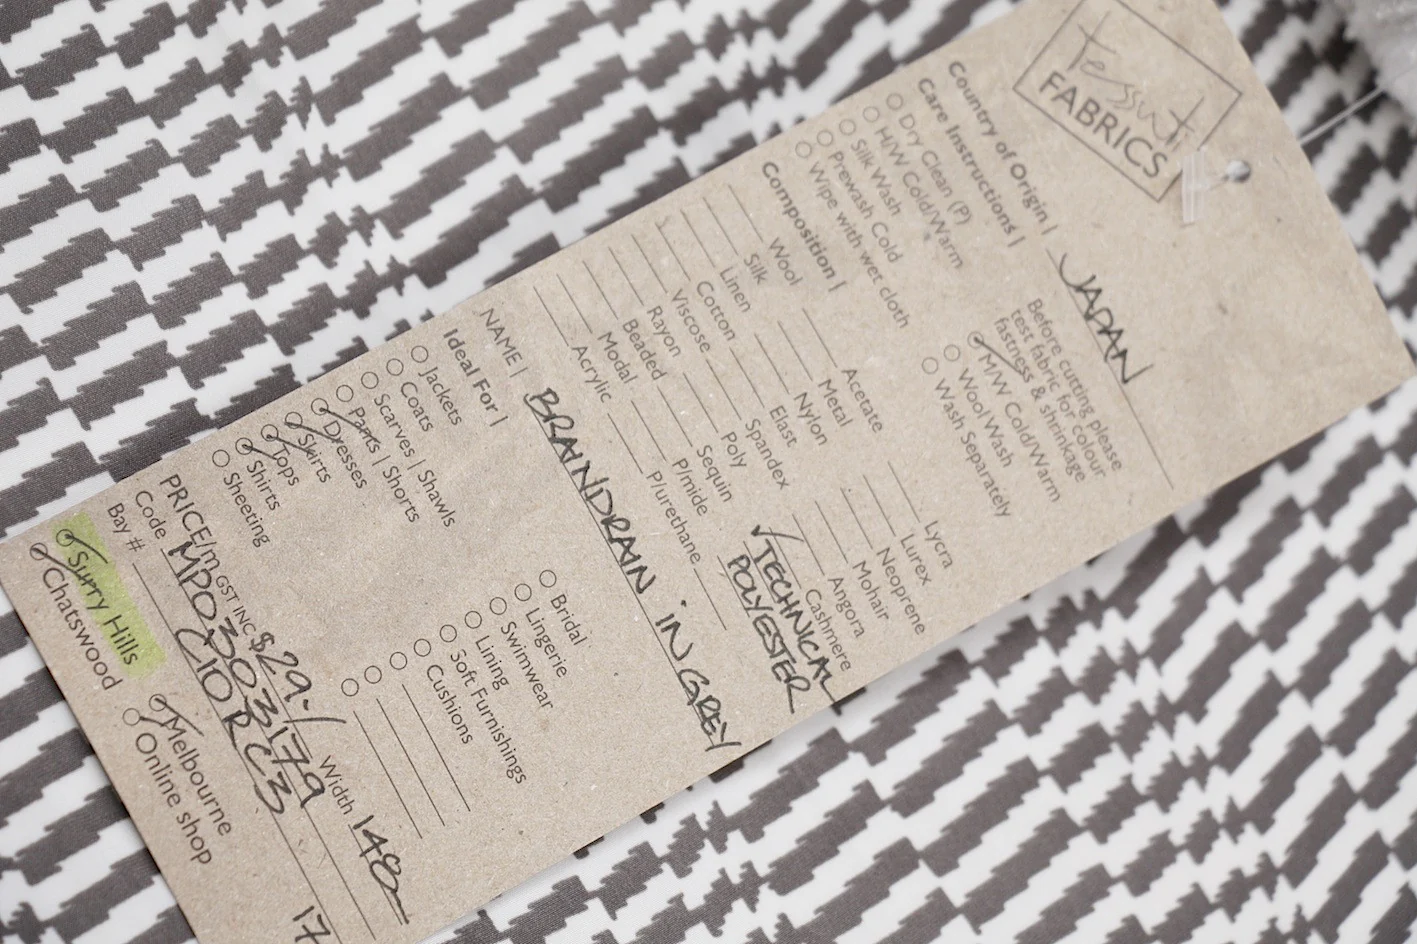 Tessuti
FABRICS
Country of Origin | JAPAN
Care Instructions |
Dry Clean (P)
H/W Cold/Warm
Silk Wash
Prewash Cold
Wipe with wet cloth
Before cutting please
test fabric for colour
fastness & shrinkage
M/W Cold/Warm
Wool Wash
Wash Separately
Composition |
Wool
Silk
Linen
Cotton
Viscose
Rayon
Beaded
Modal
Acrylic
Acetate
Metal
Nylon
Elast
Spandex
Poly
Sequin
P/mide
P/urethane
Lycra
Lurex
Neoprene
Mohair
Angora
Cashmere
TECHNICAL
POLYESTER
NAME | BRAINDRAIN IN GREY
Ideal For |
Jackets
Coats
Scarves | Shawls
Pants | Shorts
Dresses
Skirts
Tops
Shirts
Sheeting
Bridal
Lingerie
Swimwear
Lining
Soft Furnishings
Cushions
PRICE/m GST INC $29.-/ Width 148
Code MP03033179
Bay # C10 RC3
17
Surry Hills
Chatswood
Melbourne
Online shop